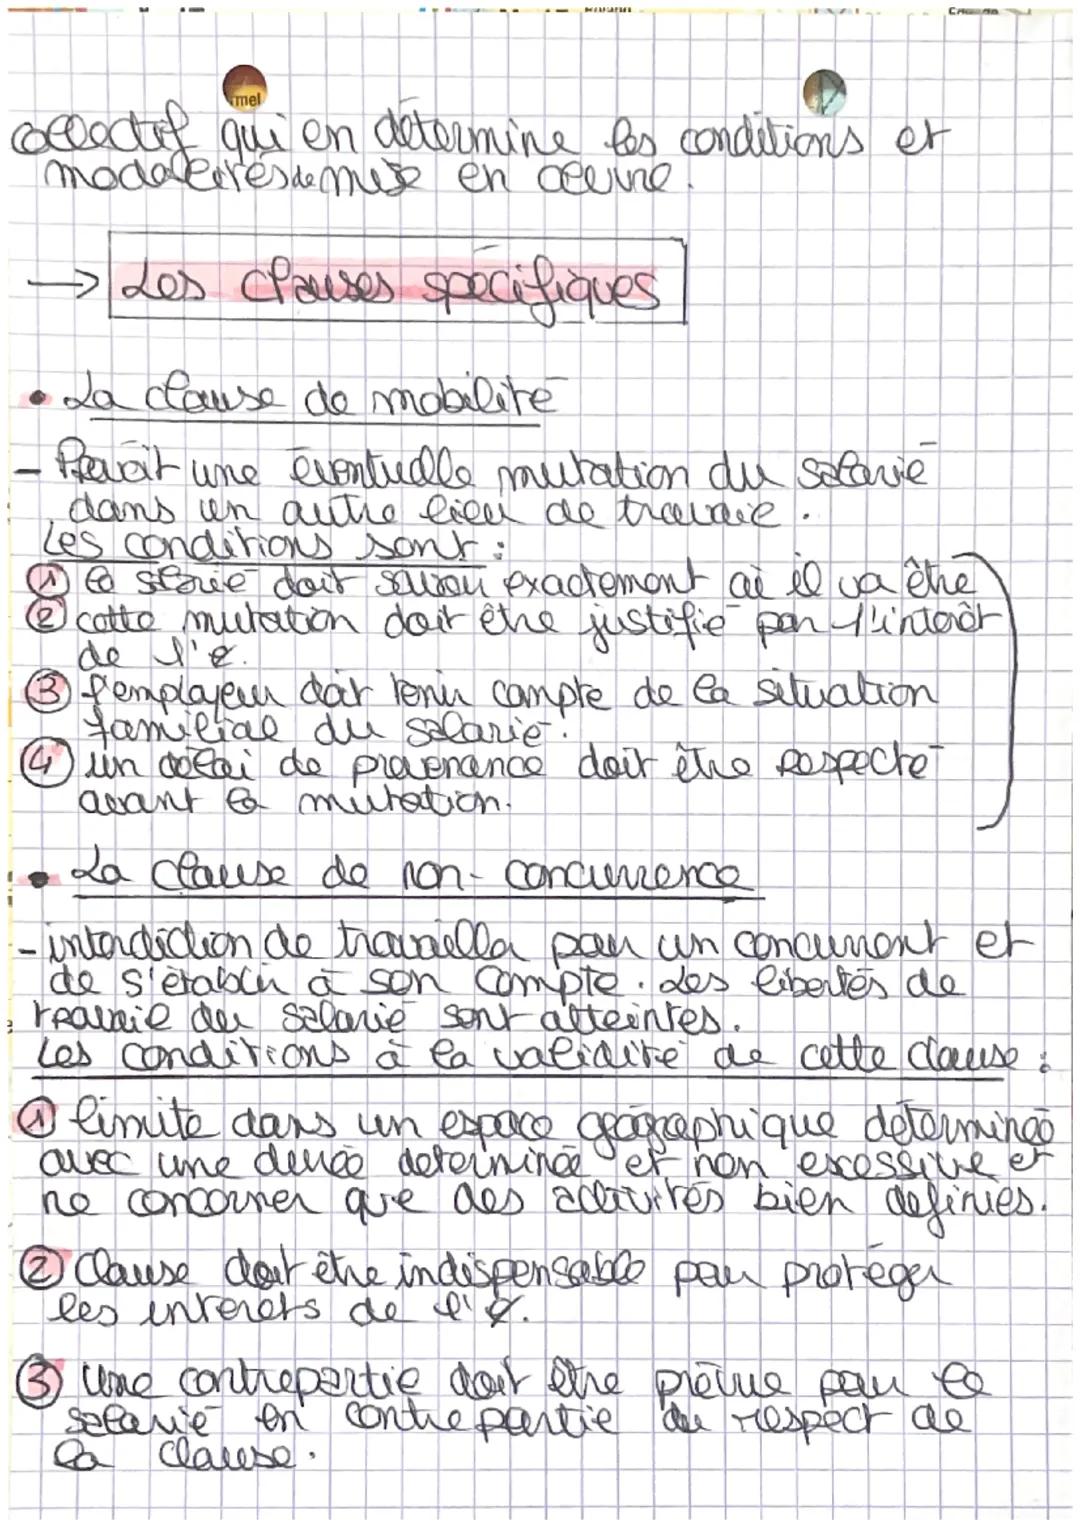 mel
collectif qui en détermine les conditions et
modalités de mise en œuvre.
→ Les clauses spécifiques
• La clause de mobilité
- Prévoit une éventuelle mutation du salarié
dans un autre lieu de travail.
Les conditions sont :
① le salarié doit savoir exactement où il va être
② cette mutation doit être justifié par l'intérêt
de l'e.
③ l'employeur doit tenir compte de la situation
familial du salarié.
④ un délai de prévenance doit être respecté
avant la mutation.
• La clause de non-concurrence
- interdiction de travailler pour un concurrent et
de s'établir à son compte. Les libertés de
travail du salarié sont atteintes.
Les conditions à la validité de cette clause :
① limite dans un espace géographique déterminée
avec une durée determinée et non excessive et
ne concerner que des activités bien définies.
② Clause doit être indispensable pour protéger
les interets de l'e.
③ Une contrepartie doit être prévue pour le
salarié en contrepartie du respect de
la clause.